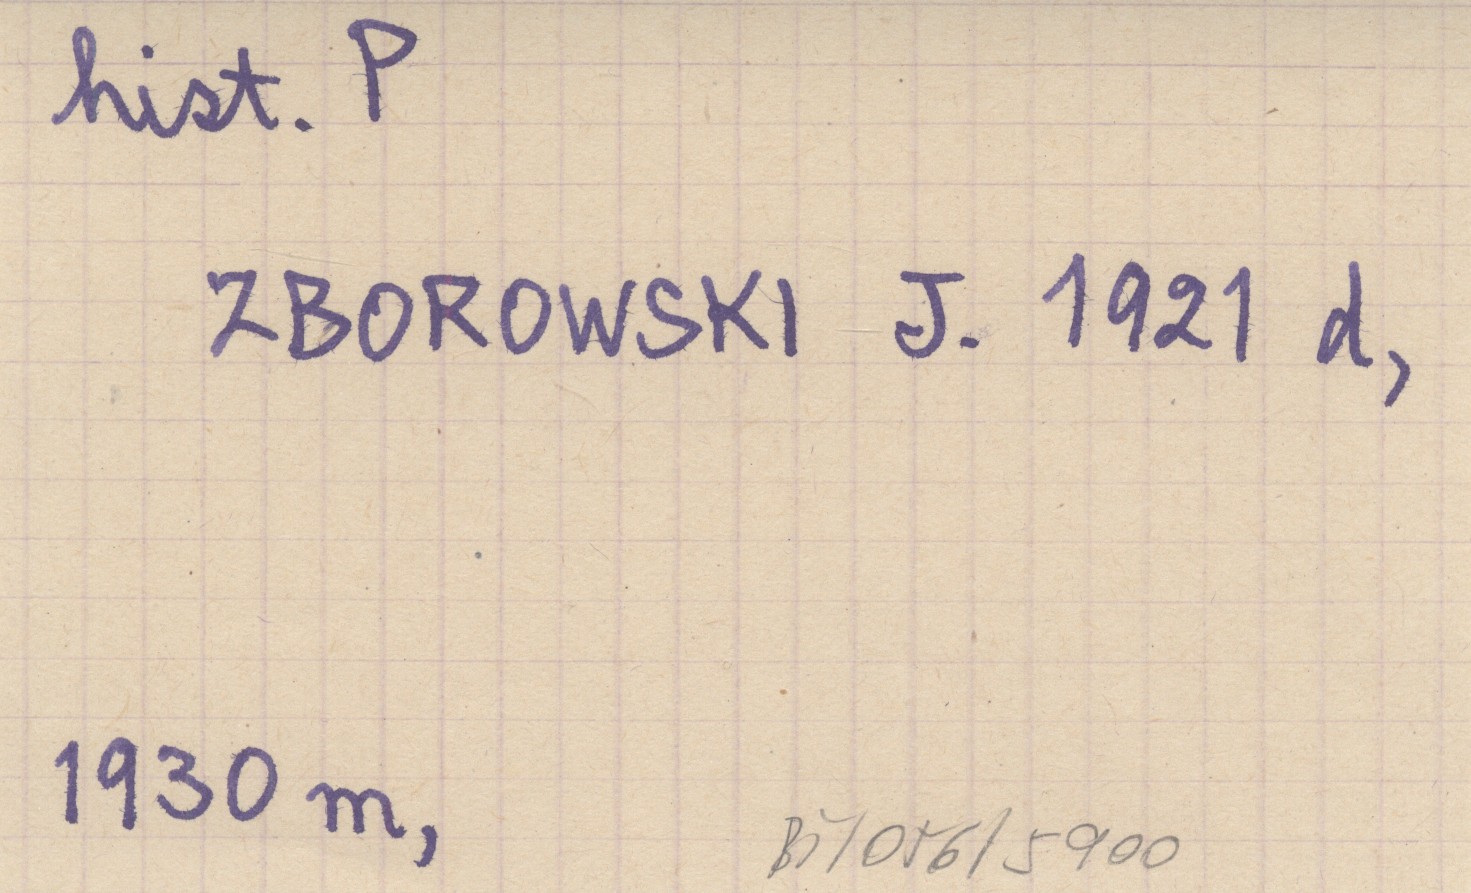 hist. P
ZBOROWSKI J. 1921 d,
1930 m,
Bi/056/5900